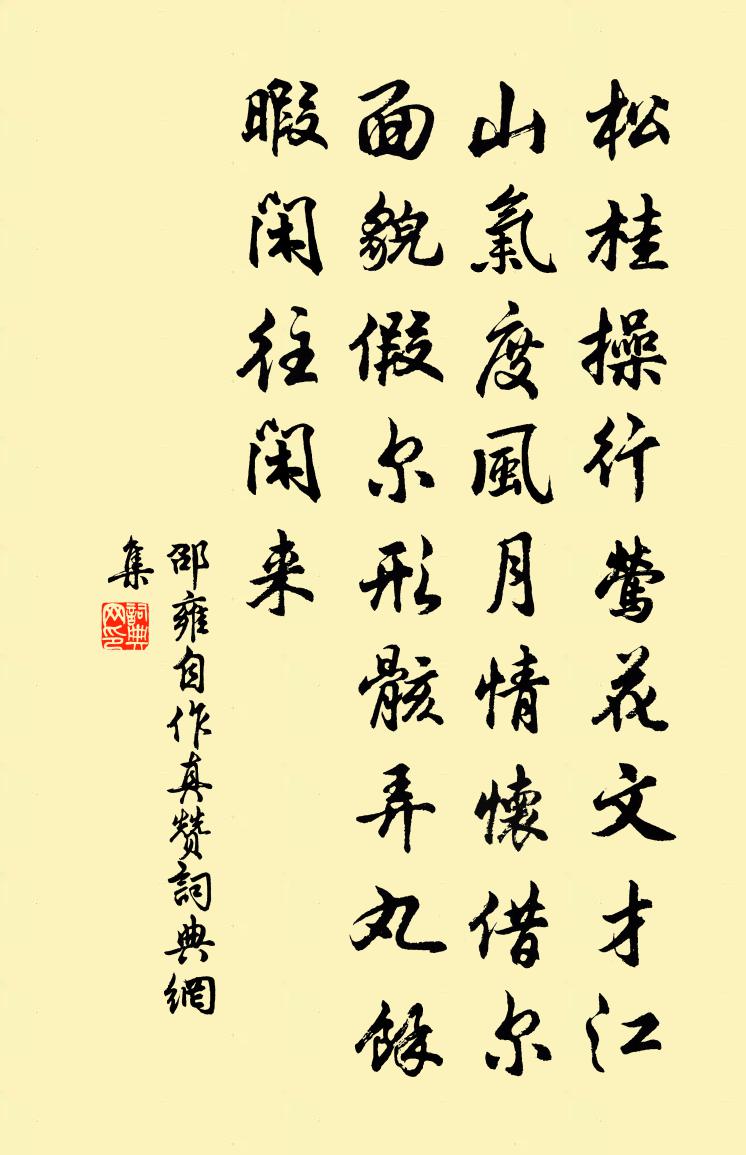 松桂操行鶯花文才江
山氣度風月情懷借尔
面貌假尔形骸弄丸餘
暇閑往閑来
邵雍自作真赞詞典網
集
詞典
网印